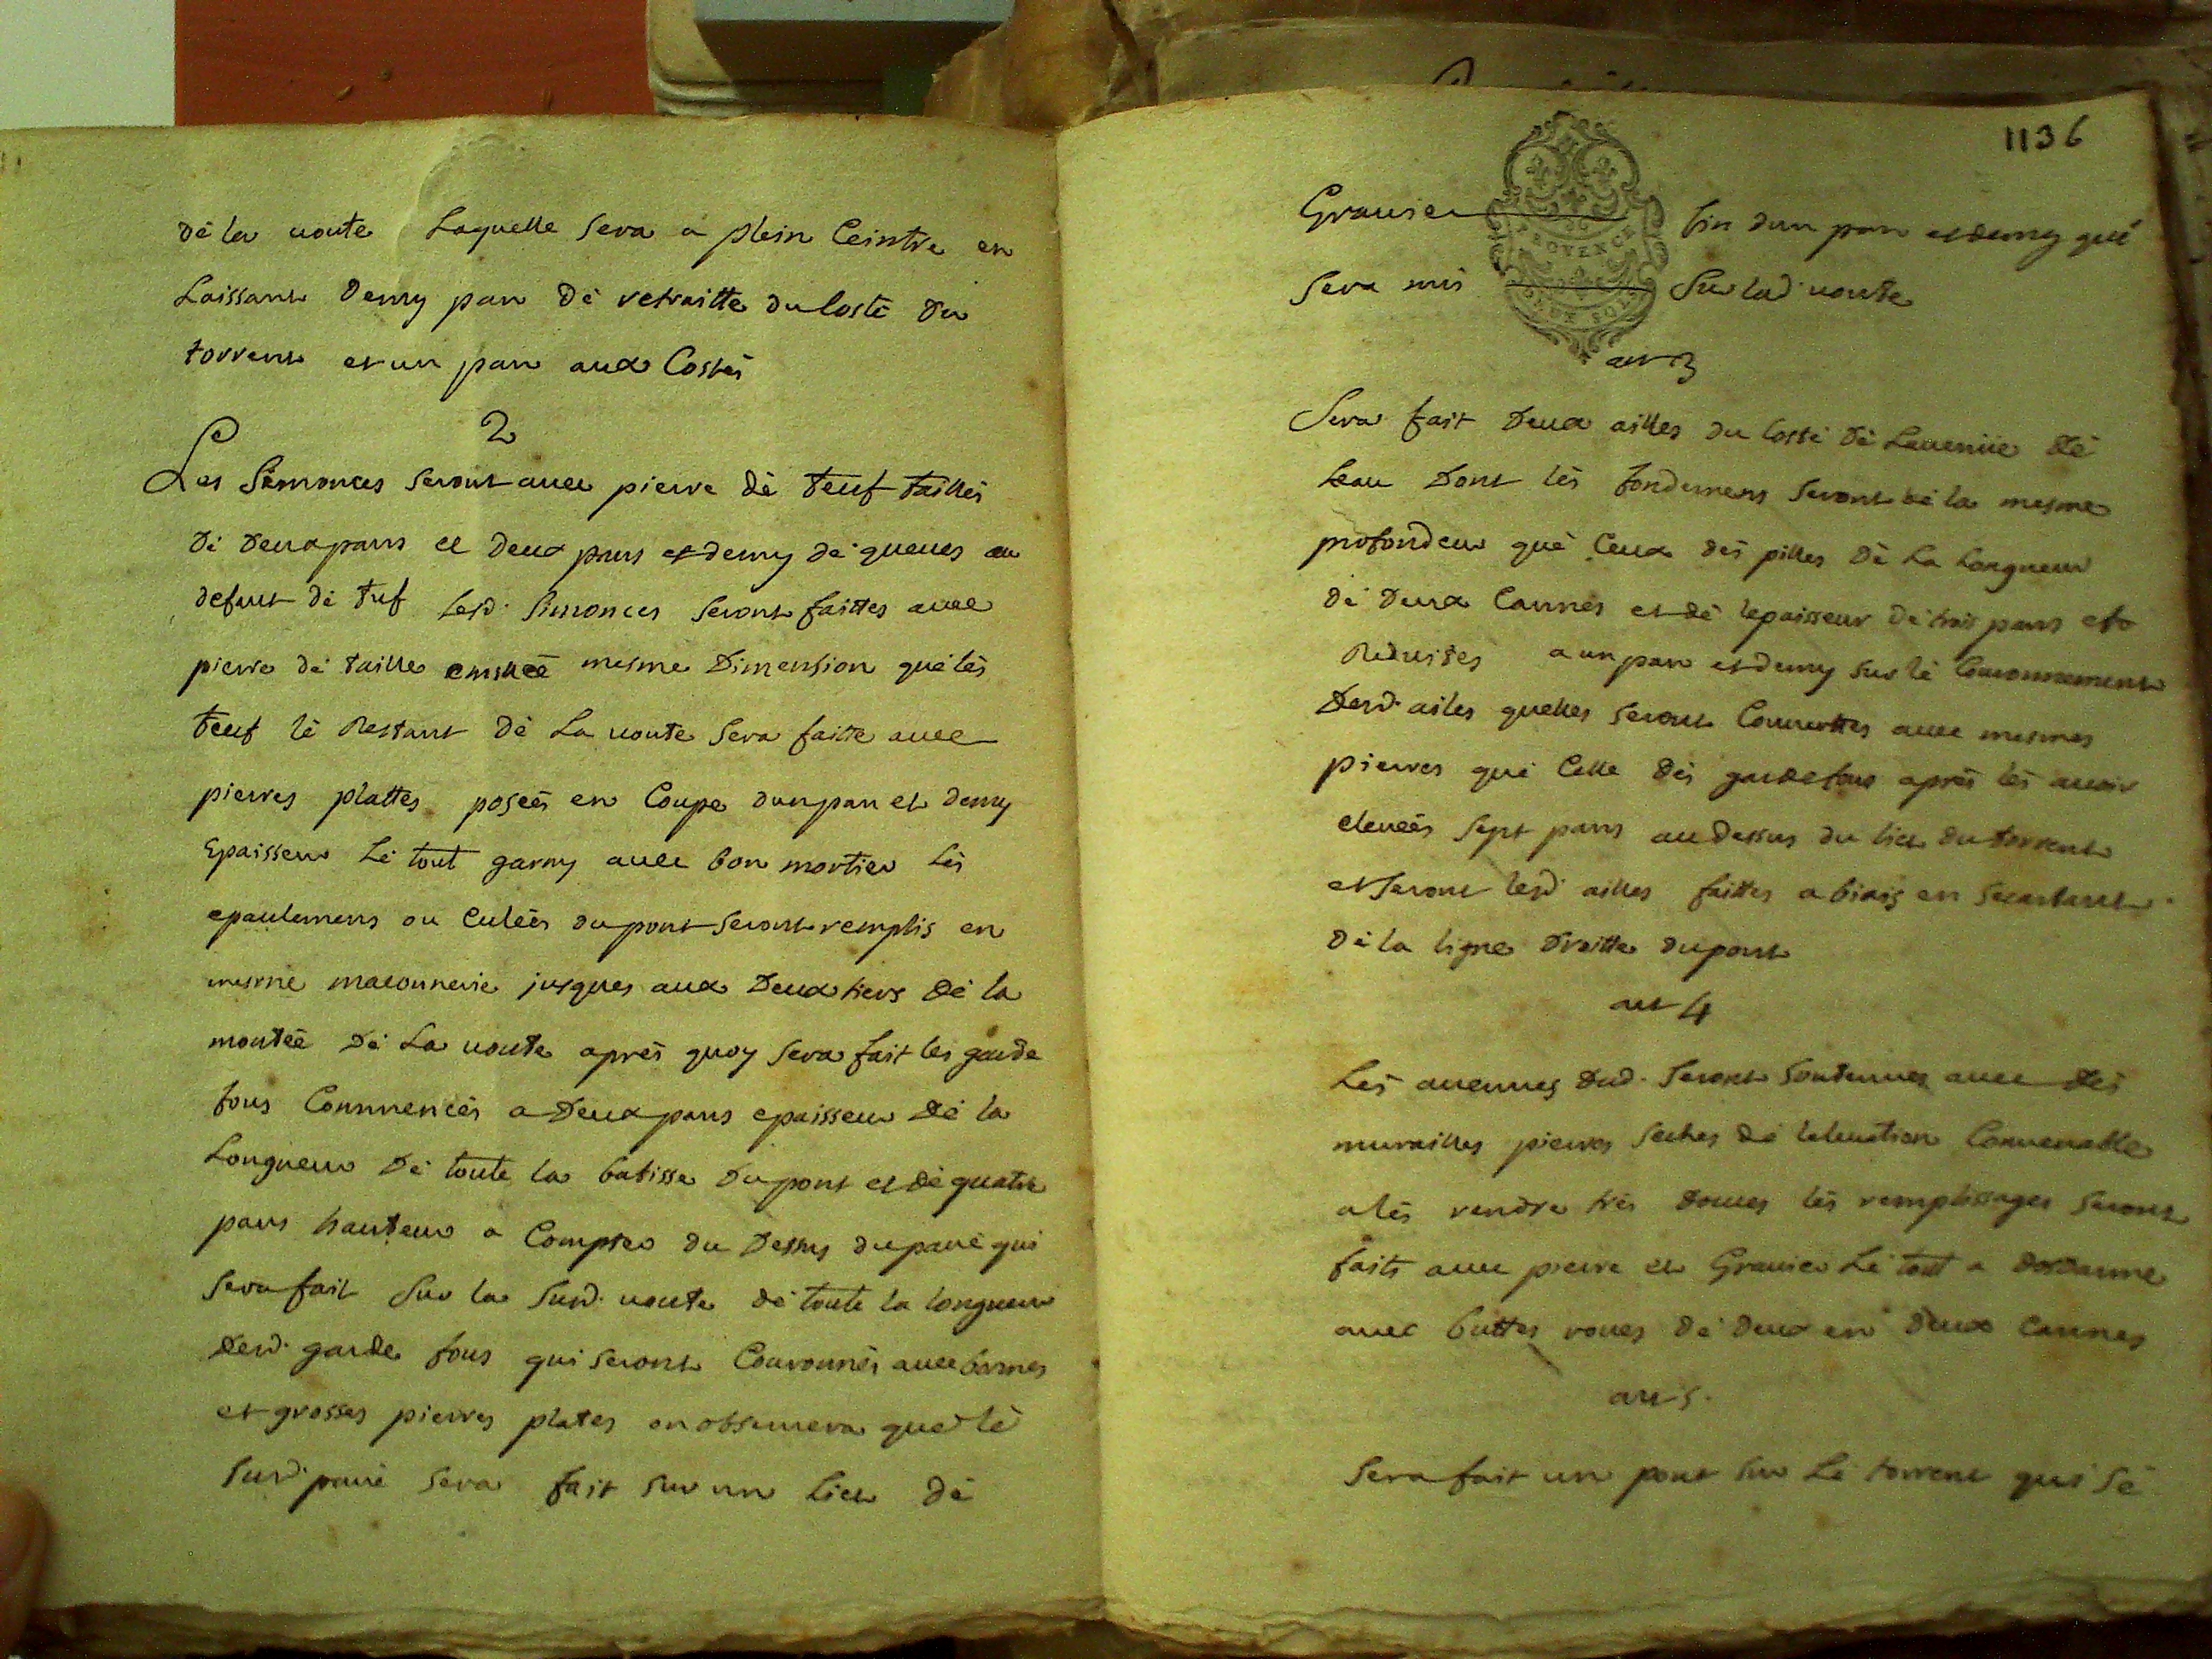 dé la voute Laquelle sera a plein Ceintre en
Laissant demy pan dé retraitte du Costé du
torrent et un pan aux Costés
2
Les Simonces seront avec pierre dé teuf taillés
dé deux pans et deux pans et demy dé queues au
defaut dé tuf lesd. Simonces seront faittes avec
pierre dé taille mesme Dimension qué lés
teuf lé Restant dé La voute sera faitte avec
pierres plattes poseés en Coupe dun pan et demy
Epaisseur Lé tout garny avec bon mortier Lés
epaulemens ou Culéés du pont seront remplis en
mesme maconnerie jusques aux Deux tiers dé la
montéé dé La voute aprés quoy sera fait les garde
fous Commencés a Deux pans epaisseur dé la
Longueur dé toute la batisse du pont et dé quatre
pans hauteur a Compter du Dessus du pavé qui
sera fait Sur la Susd. voute dé toute la longueur
desd. garde fous qui seront Couronnés avec bonnes
et grosses pierres plates on observera qué lé
susd. pavé sera fait sur un Lict dé
1136
Gravier fin dun pan et demy qué
PROVENCE
sera mis Sur lad. voute
art 3
Sera fait Deux ailles du Costé dé Lavenüe dé
Leau Dont lés fondemens seront dé la mesme
profondeur qué Ceux dés pilles dé La Longueur
dé Deux Cannes et dé lepaisseur dé trois pans et
Reduites a un pan et demy sur lé Couronnement
desd. ailes quelles seront Couvertes avec mesmes
pierres qué Celle dés gardefous aprés lés avoir
eleveés sept pans au dessus du lict du torrent
et seront lesd. ailles faittes a biais en secartant
dé la ligne droitte du pont
art 4
Lés avenues dud. seront soutenues avec dés
murailles pierres seches dé lelevation Convenable
a lés rendre trés douces lés remplissages seront
faits avec pierre et Gravier Lé tout a
avec buttes roues dé deux en deux Cannes
art 5.
Sera fait un pont sur Lé torrent qui sé